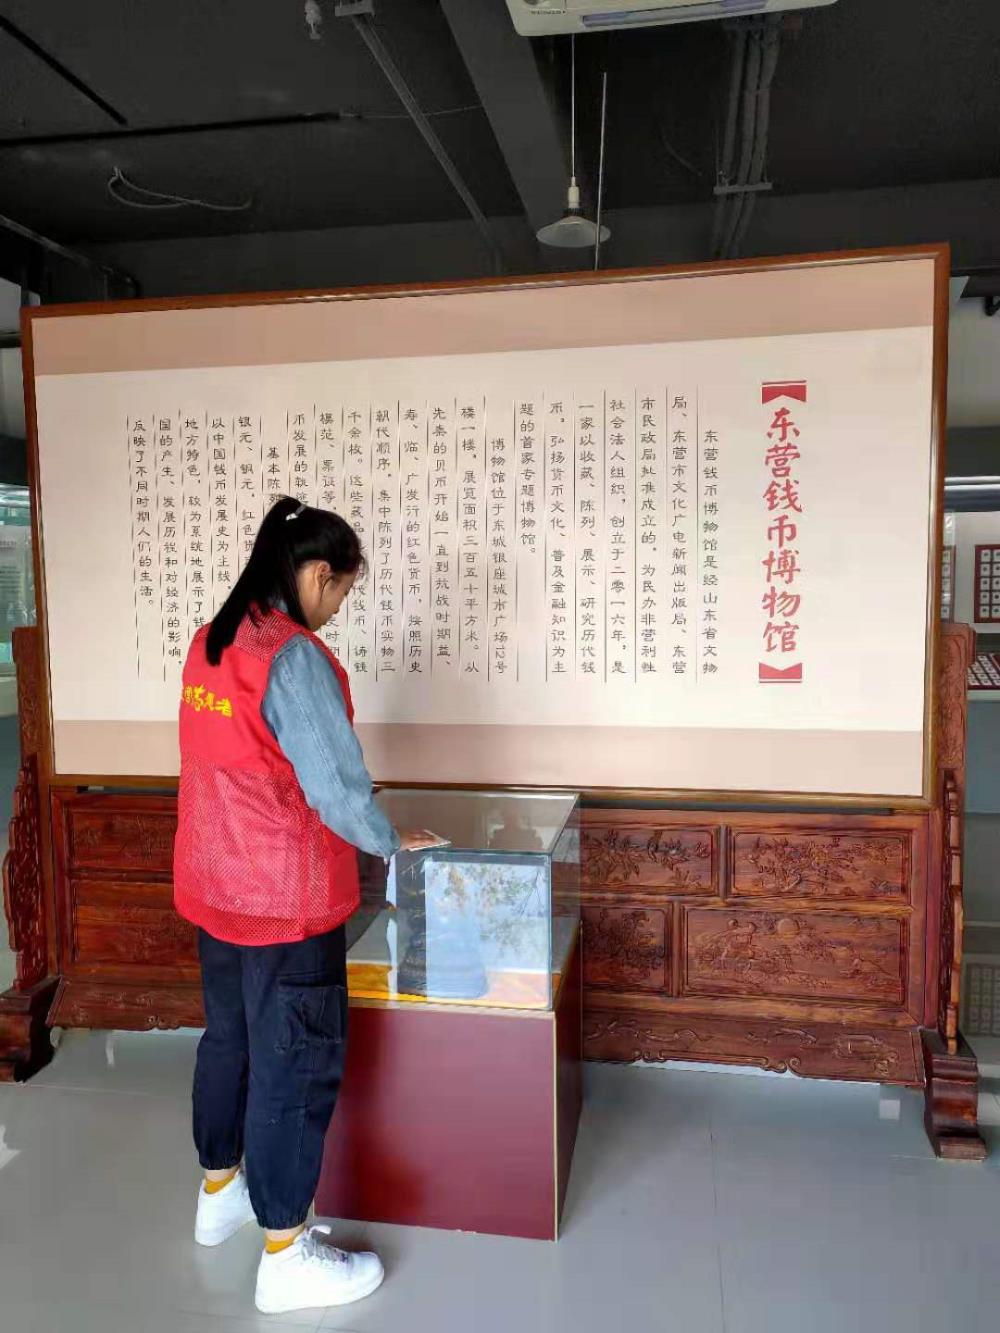 【东营钱币博物馆】
东营钱币博物馆是经山东省文物
局、东营市文化广电新闻出版局、东营
市民政局批准成立的，为民办非营利性
社会法人组织，创立于二零一六年，是
一家以收藏、陈列、展示、研究历代钱
币，弘扬货币文化、普及金融知识为主
题的首家专题博物馆。
博物馆位于东城银座城市广场12号
楼一楼，展览面积三百五十平方米。从
先秦的贝币开始一直到抗战时期益、
寿、临、广发行的红色货币，按照历史
朝代顺序，集中陈列了历代钱币实物三
千余枚。这些藏品 代钱币、铸钱
模范、票证等， 史时期
币发展的轨
基本陈列
银元、铜元，红色货
以中国钱币发展史为主线，
地方特色，较为系统地展示了钱
国的产生、发展历程和对经济的影响，
反映了不同时期人们的生活。
志愿者